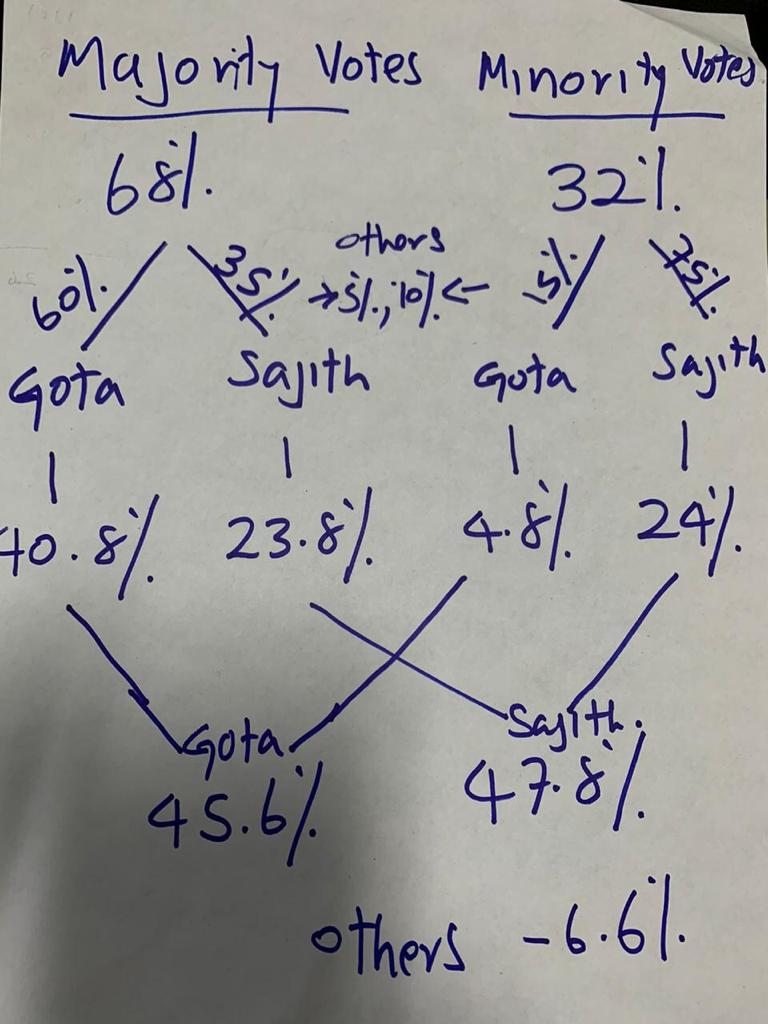 Majority Votes Minority Votes
68% 32%
others
60% 35% →5%, 10%← 15% 75%
Gota Sajith Gota Sajith
40.8% 23.8% 4.8% 24%
Gota Sajith.
45.6% 47.8%
others - 6.6%